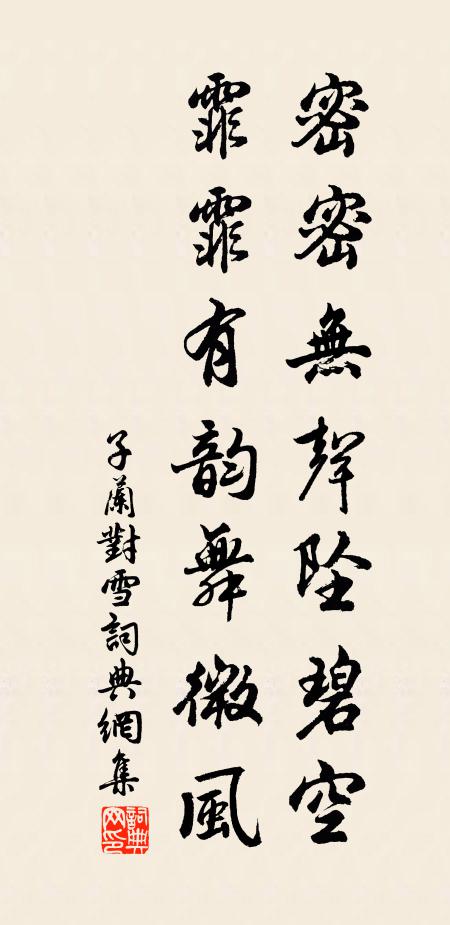 密密無聲墜碧空
霏霏有韵舞微風
子蘭對雪詞典網集
詞典網印